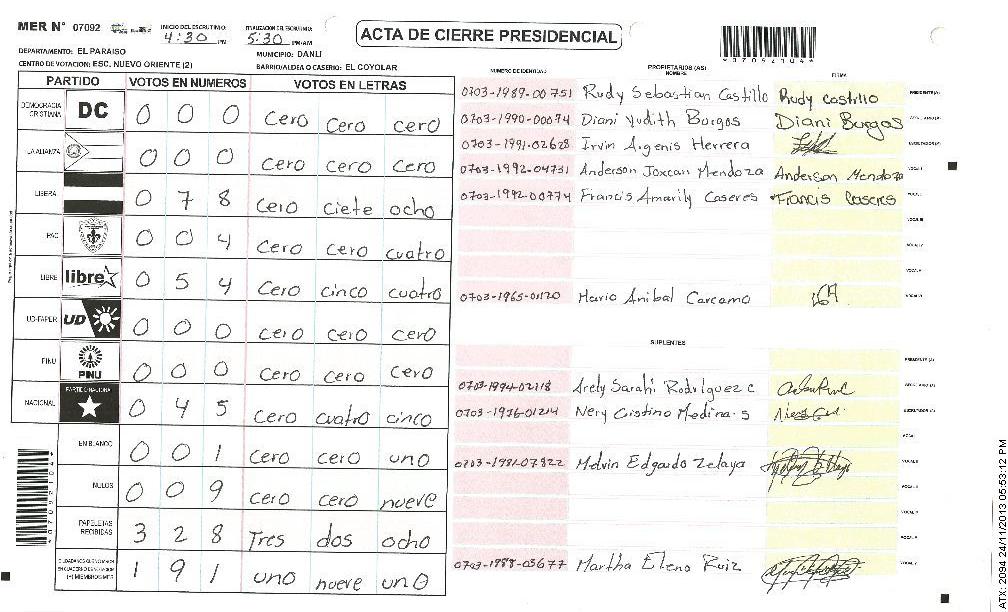 MER N° 07092
INICIO DEL ESCRUTINIO
4:30 PM
FINALIZACION DEL ESCRUTINIO
5:30 PM-AM
ACTA DE CIERRE PRESIDENCIAL
*07092104*
DEPARTAMENTO: EL PARAISO
MUNICIPIO: DANLI
CENTRO DE VOTACION: ESC. NUEVO ORIENTE (2)
BARRIO/ALDEA O CASERIO: EL COYOLAR
PARTIDO VOTOS EN NUMEROS VOTOS EN LETRAS
DEMOCRACIA CRISTIANA DC 0 0 0 cero cero cero
LA ALIANZA 0 0 0 cero cero cero
LIBERA 0 7 8 cero ciete ocho
PAC 0 0 4 cero cero cuatro
LIBRE libre 0 5 4 cero cinco cuatro
UD-FAPER UD 0 0 0 cero cero cero
PINU PINU 0 0 0 cero cero cero
NACIONAL PARTIDO NACIONAL 0 4 5 cero cuatro cinco
EN BLANCO 0 0 1 cero cero uno
NULOS 0 0 9 cero cero nueve
PAPELETAS RECIBIDAS 3 2 8 Tres dos ocho
1 9 1 uno nueve uno
NUMERO DE IDENTIDAD PROPIETARIOS (AS) NOMBRE FIRMA
0703-1989-00751 Rudy Sebastian Castillo Rudy Castillo PRESIDENTE(A)
0703-1990-00074 Diani Yudith Burgos Diani Burgos SECRETARIO(A)
0703-1991-02628 Irvin Argenis Herrera ESCRUTADOR(A)
0703-1992-04731 Anderson Joxcan Mendoza Anderson Mendoza VOCAL I
0703-1992-00774 Francis Amarily Caseres Francis Caseres
VOCAL III
VOCAL IV
0703-1965-01120 Mario Anibal Carcamo
SUPLENTES
PRESIDENTE(A)
0703-1994-02118 Arely Sarahi Rodriguez c SECRETARIO(A)
0703-1976-01214 Nery Cristino Medina s ESCRUTADOR(A)
0703-1981-07822 Melvin Edgardo Zelaya
0703-1988-03677 Martha Elena Ruiz
*07092104*
ATX: 2094 24/11/2013 05:53:12 PM